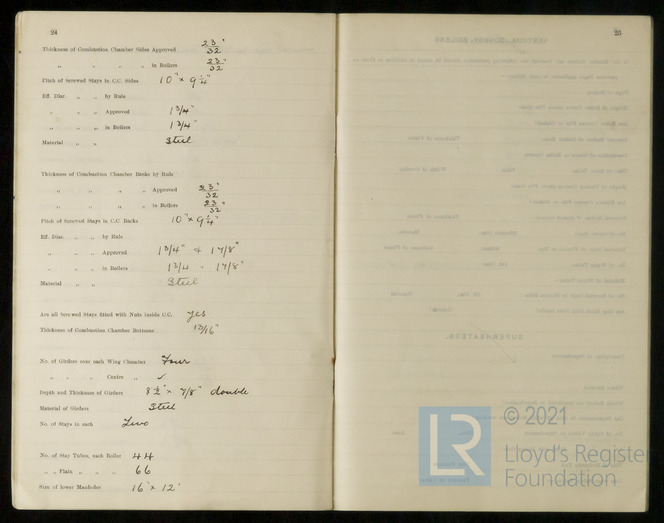 24
Thickness of Combustion Chamber Sides Approved 23/32"
" " " " in Boilers 23/32"
Pitch of Screwed Stays in C.C. Sides 10" x 9 1/4"
Eff. Diar. " " by Rule
" " " Approved 1 3/4"
" " " in Boilers 1 3/4"
Material " " Steel
Thickness of Combustion Chamber Backs by Rule
" " " " Approved 23/32"
" " " " in Boilers 23/32"
Pitch of Screwed Stays in C.C. Backs 10" x 9 1/4"
Eff. Diar. " " by Rule
" " " Approved 1 3/4" & 1 7/8"
" " " in Boilers 1 3/4 - 1 7/8"
Material " " Steel
Are all Screwed Stays fitted with Nuts inside C.C. Yes
Thickness of Combustion Chamber Bottoms 13/16"
No. of Girders over each Wing Chamber Four
" " " Centre " ✓
Depth and Thickness of Girders 8 1/2" x 7/8" double
Material of Girders Steel
No. of Stays in each Two
No. of Stay Tubes, each Boiler 44
" " Plain " " " 66
Size of lower Manholes 16" x 12"
25
LR
© 2021
Lloyd's Register
Foundation